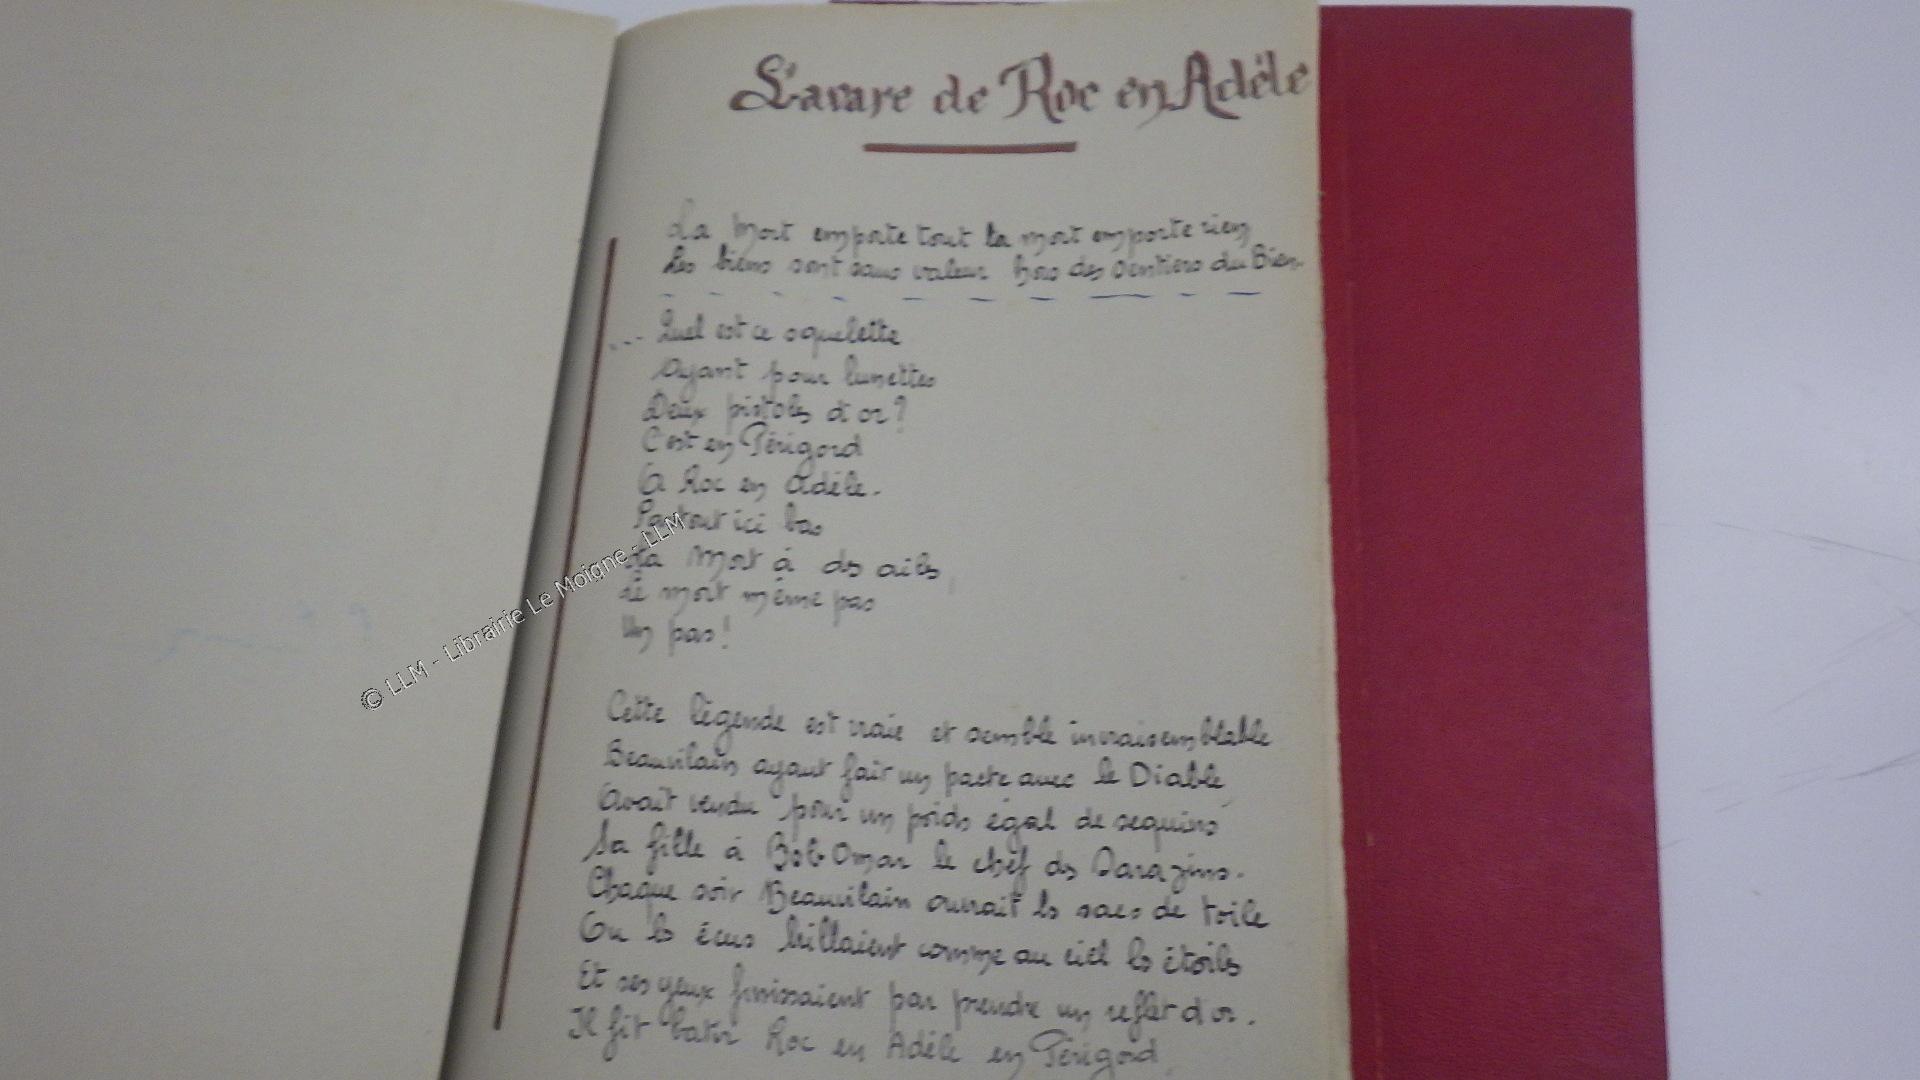 L'avare de Roc en Adèle
La Mort emporte tout la mort emporte rien
Les biens sont sans valeur hors des sentiers du Bien.
... Quel est ce squelette
Ayant pour lunettes
Deux pistoles d'or?
C'est en Périgord
A Roc en Adèle.
Partout ici bas
La Mort à des ailes,
Le mort même pas
Un pas!
Cette légende est vraie et semble invraisemblable
Beauvilain ayant fait un pacte avec le Diable,
Avait vendu pour un poids égal de sequins
Sa fille à Bob Omar le chef des Sarazins.
Chaque soir Beauvilain ouvrait les sacs de toile
Ou les écus brillaient comme au ciel les étoiles
Et ses yeux finissaient par prendre un reflet d'or.
Il fit batir Roc en Adèle en Périgord,
© LLM - Librairie Le Moigne - LLM